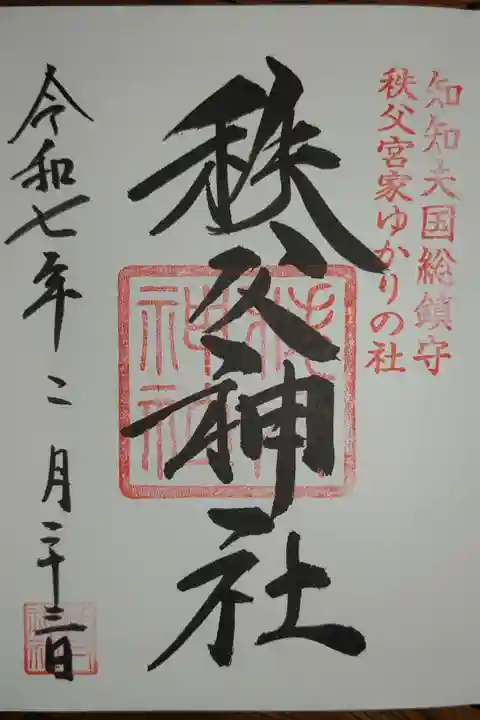 知知夫国総鎮守
秩父宮家ゆかりの社
秩父神社
令和七年二月二十三日
秩父神社